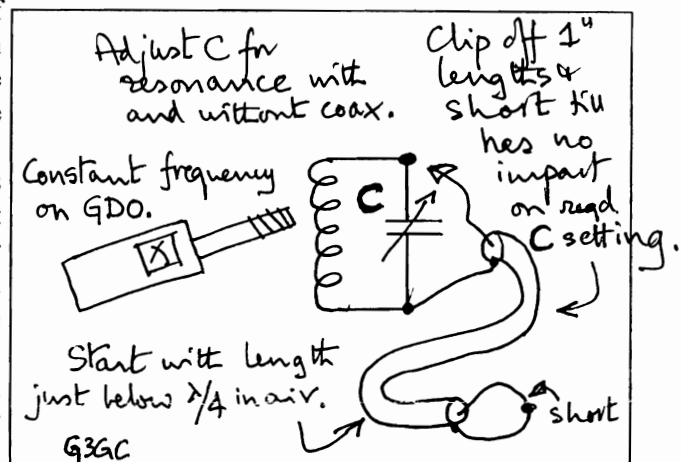 Adjust C for
resonance with
and without coax.
Clip off 1"
lengths &
short till
has no
impact
on reqd
C setting.
Constant frequency
on GDO.
X
C
Start with length
just below λ/4 in air.
short
G3GC